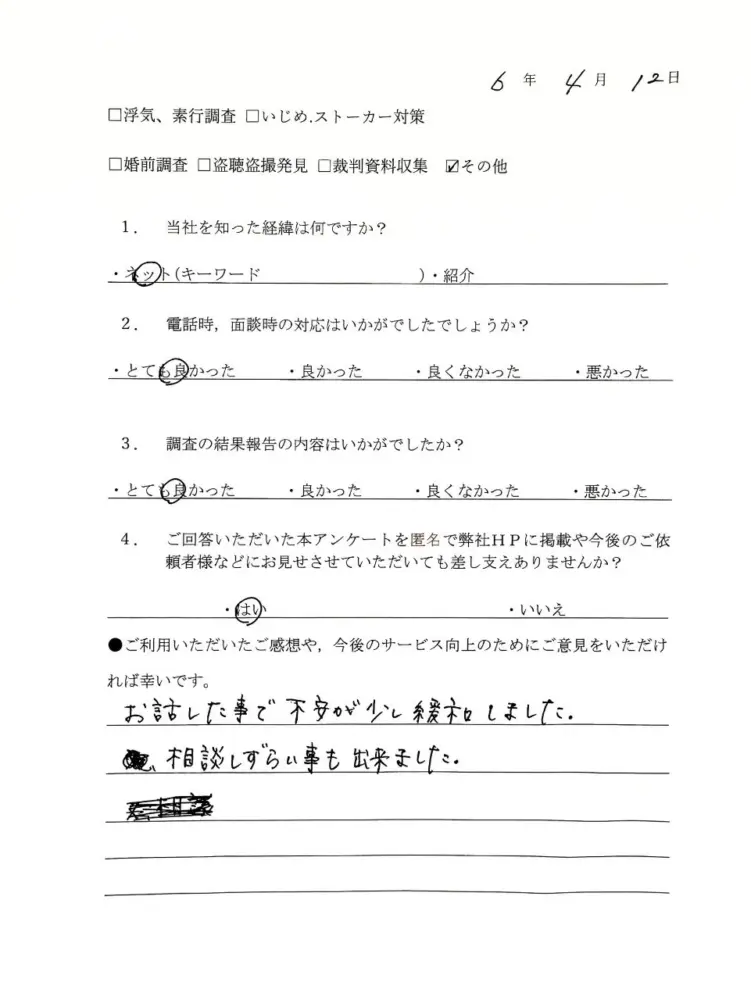 6年 4月 12日
□浮気、素行調査 □いじめ.ストーカー対策
□婚前調査 □盗聴盗撮発見 □裁判資料収集 ☑その他
１． 当社を知った経緯は何ですか？
・ネット(キーワード )・紹介
２． 電話時，面談時の対応はいかがでしたでしょうか？
・とても良かった ・良かった ・良くなかった ・悪かった
３． 調査の結果報告の内容はいかがでしたか？
・とても良かった ・良かった ・良くなかった ・悪かった
４． ご回答いただいた本アンケートを匿名で弊社ＨＰに掲載や今後のご依
頼者様などにお見せさせていただいても差し支えありませんか？
・はい ・いいえ
●ご利用いただいたご感想や，今後のサービス向上のためにご意見をいただけ
れば幸いです。
お話した事で不安が少し緩和しました。
相談しずらい事も出来ました。